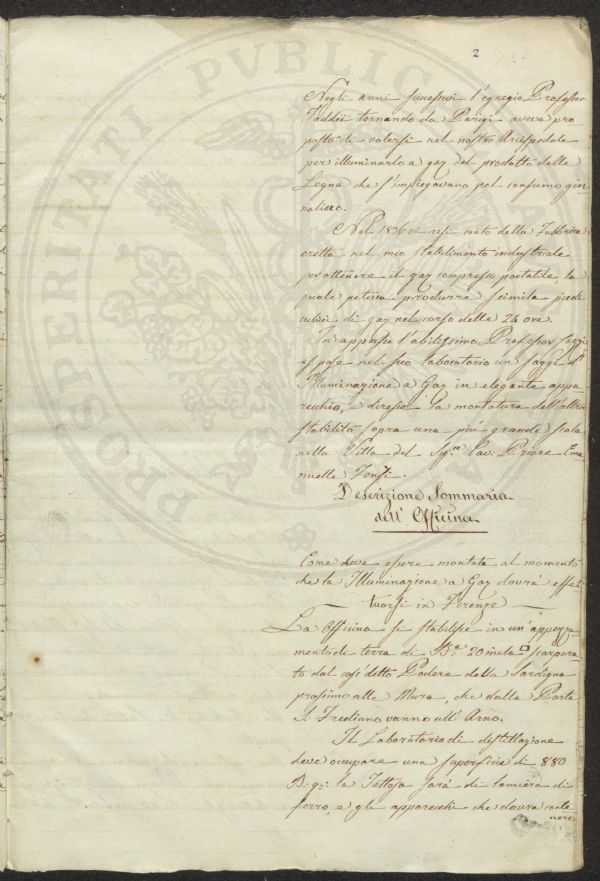 2
Negli anni successivi l'egregio Professor
Taddei tornando da Parigi aveva pro
posto di valersi nel nostro Arcispedale
per illuminarlo a gaz del prodotto delle
Legna che s'impiegavano pel consumo gior-
naliero.
Nel 1836 vi resi conto della Fabbrica
eretta nel mio stabilimento industriale
per ottenere il gaz compresso portatile, la
quale poteva produrre seimila piedi
cubici di gaz nel corso delle 24 ore.
In appresso l'abilissimo Professor
espose nel suo laboratorio un saggio d'
Illuminazione a Gaz in elegante appa
recchio, e diresse la montatura dell'altro
stabilito sopra una più grande scala
nella Villa del Sigre Cav: Priore Ema
nuelle Fenzi.
Descrizione Sommaria
dell' Officina
Come deve essere montata al momento
che la Illuminazione a Gaz dovrà effet
tuarsi in Firenze
La Officina si stabilisce in un'appezza
mento di terra di Ba 20 mila □ scorpora
to dal così detto Podere della Sardigna
prossimo alle Mura, che dalla Porta
S. Frediano vanno all'Arno.
Il Laboratorio di distillazione
deve occupare una superficie di 880
B: q: la Tettoja sarà di lamiera di
ferro, e gli apparecchi che dovrà conte
nere
PROSPERITATI PVBLICAE